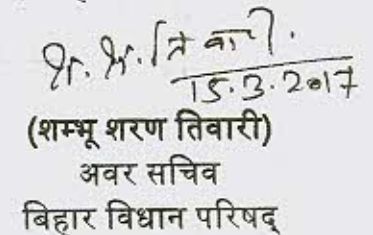 श. श. तिवारी.
15.3.2017
(शम्भू शरण तिवारी)
अवर सचिव
बिहार विधान परिषद्